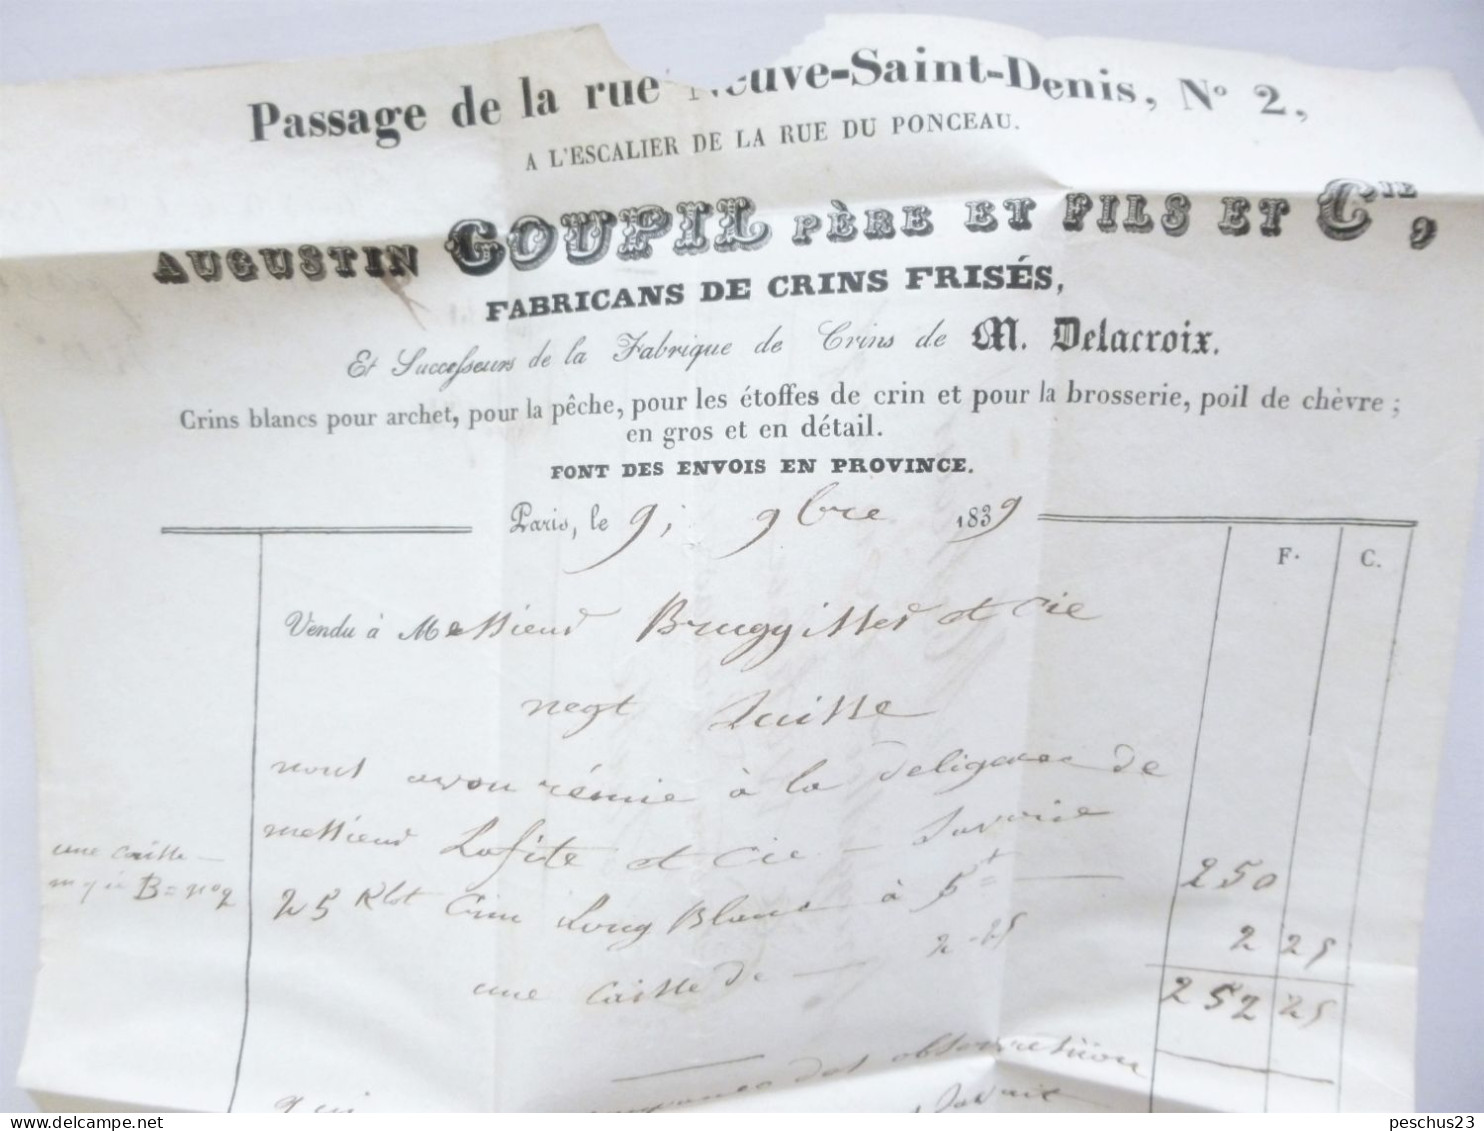 Passage de la rue Neuve-Saint-Denis, N° 2,
A L'ESCALIER DE LA RUE DU PONCEAU.
AUGUSTIN GOUPIL PÈRE ET FILS ET Cie,
FABRICANS DE CRINS FRISÉS,
Et Successeurs de la Fabrique de Crins de M. Delacroix.
Crins blancs pour archet, pour la pêche, pour les étoffes de crin et pour la brosserie, poil de chèvre;
en gros et en détail.
FONT DES ENVOIS EN PROVINCE.
Paris, le 9; 9bre 1839
F. C.
Vendu à Messieurs et Cie
negt Suisse
nous avon rémie à la de
messieurs Lafite et Cie
une caisse
B = n° 2
25 Klos Crin Long Blanc à 250
une Caisse de — 2-25 2 25
252 25
observation
peschus23